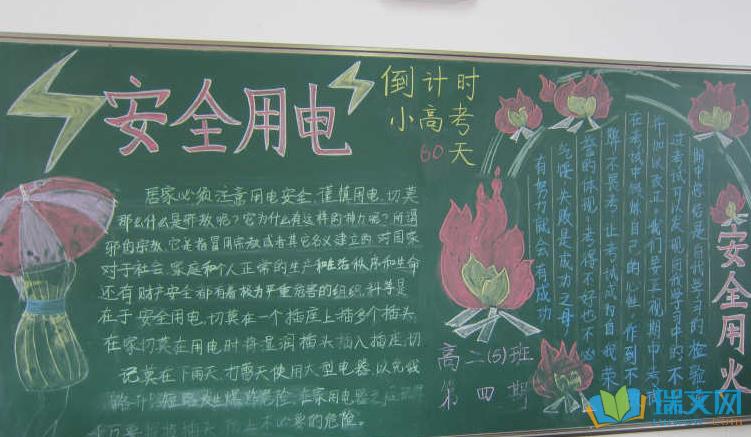 安全用电
倒计时
小高考
60天
居家必须注意用电安全,谨慎用电,切莫
那么什么是邪教呢?它为什么有这样的神力呢?所谓
邪的宗教,它是指冒用宗教或者其它名义建立的,对国家
对于社会、家庭和个人正常的生产和生活秩序和生命
还有财产安全都有着极为严重危害的组织,科等是
在于安全用电,切莫在一个插座上插多个插头,
在家切莫在用电时将湿润插头插入插座,切
记莫在下雨天,打雷天使用大型电器,以免线
路 短路发生爆炸危险,在家用电器之后
千万要 插头,防止不必要的危险。
期中也是自我学习的检验
过考试可以发现自我学习中的不
并加以改正。我们要正视期中考试
在考试中做好自己的心理,作到不
弊不畏考,让考试成为自我荣
誉的体现,考得不好也不必
气馁,失败是成功之母,
有努力就会有成功
安全用火
高二(5)班
第四期
瑞文网